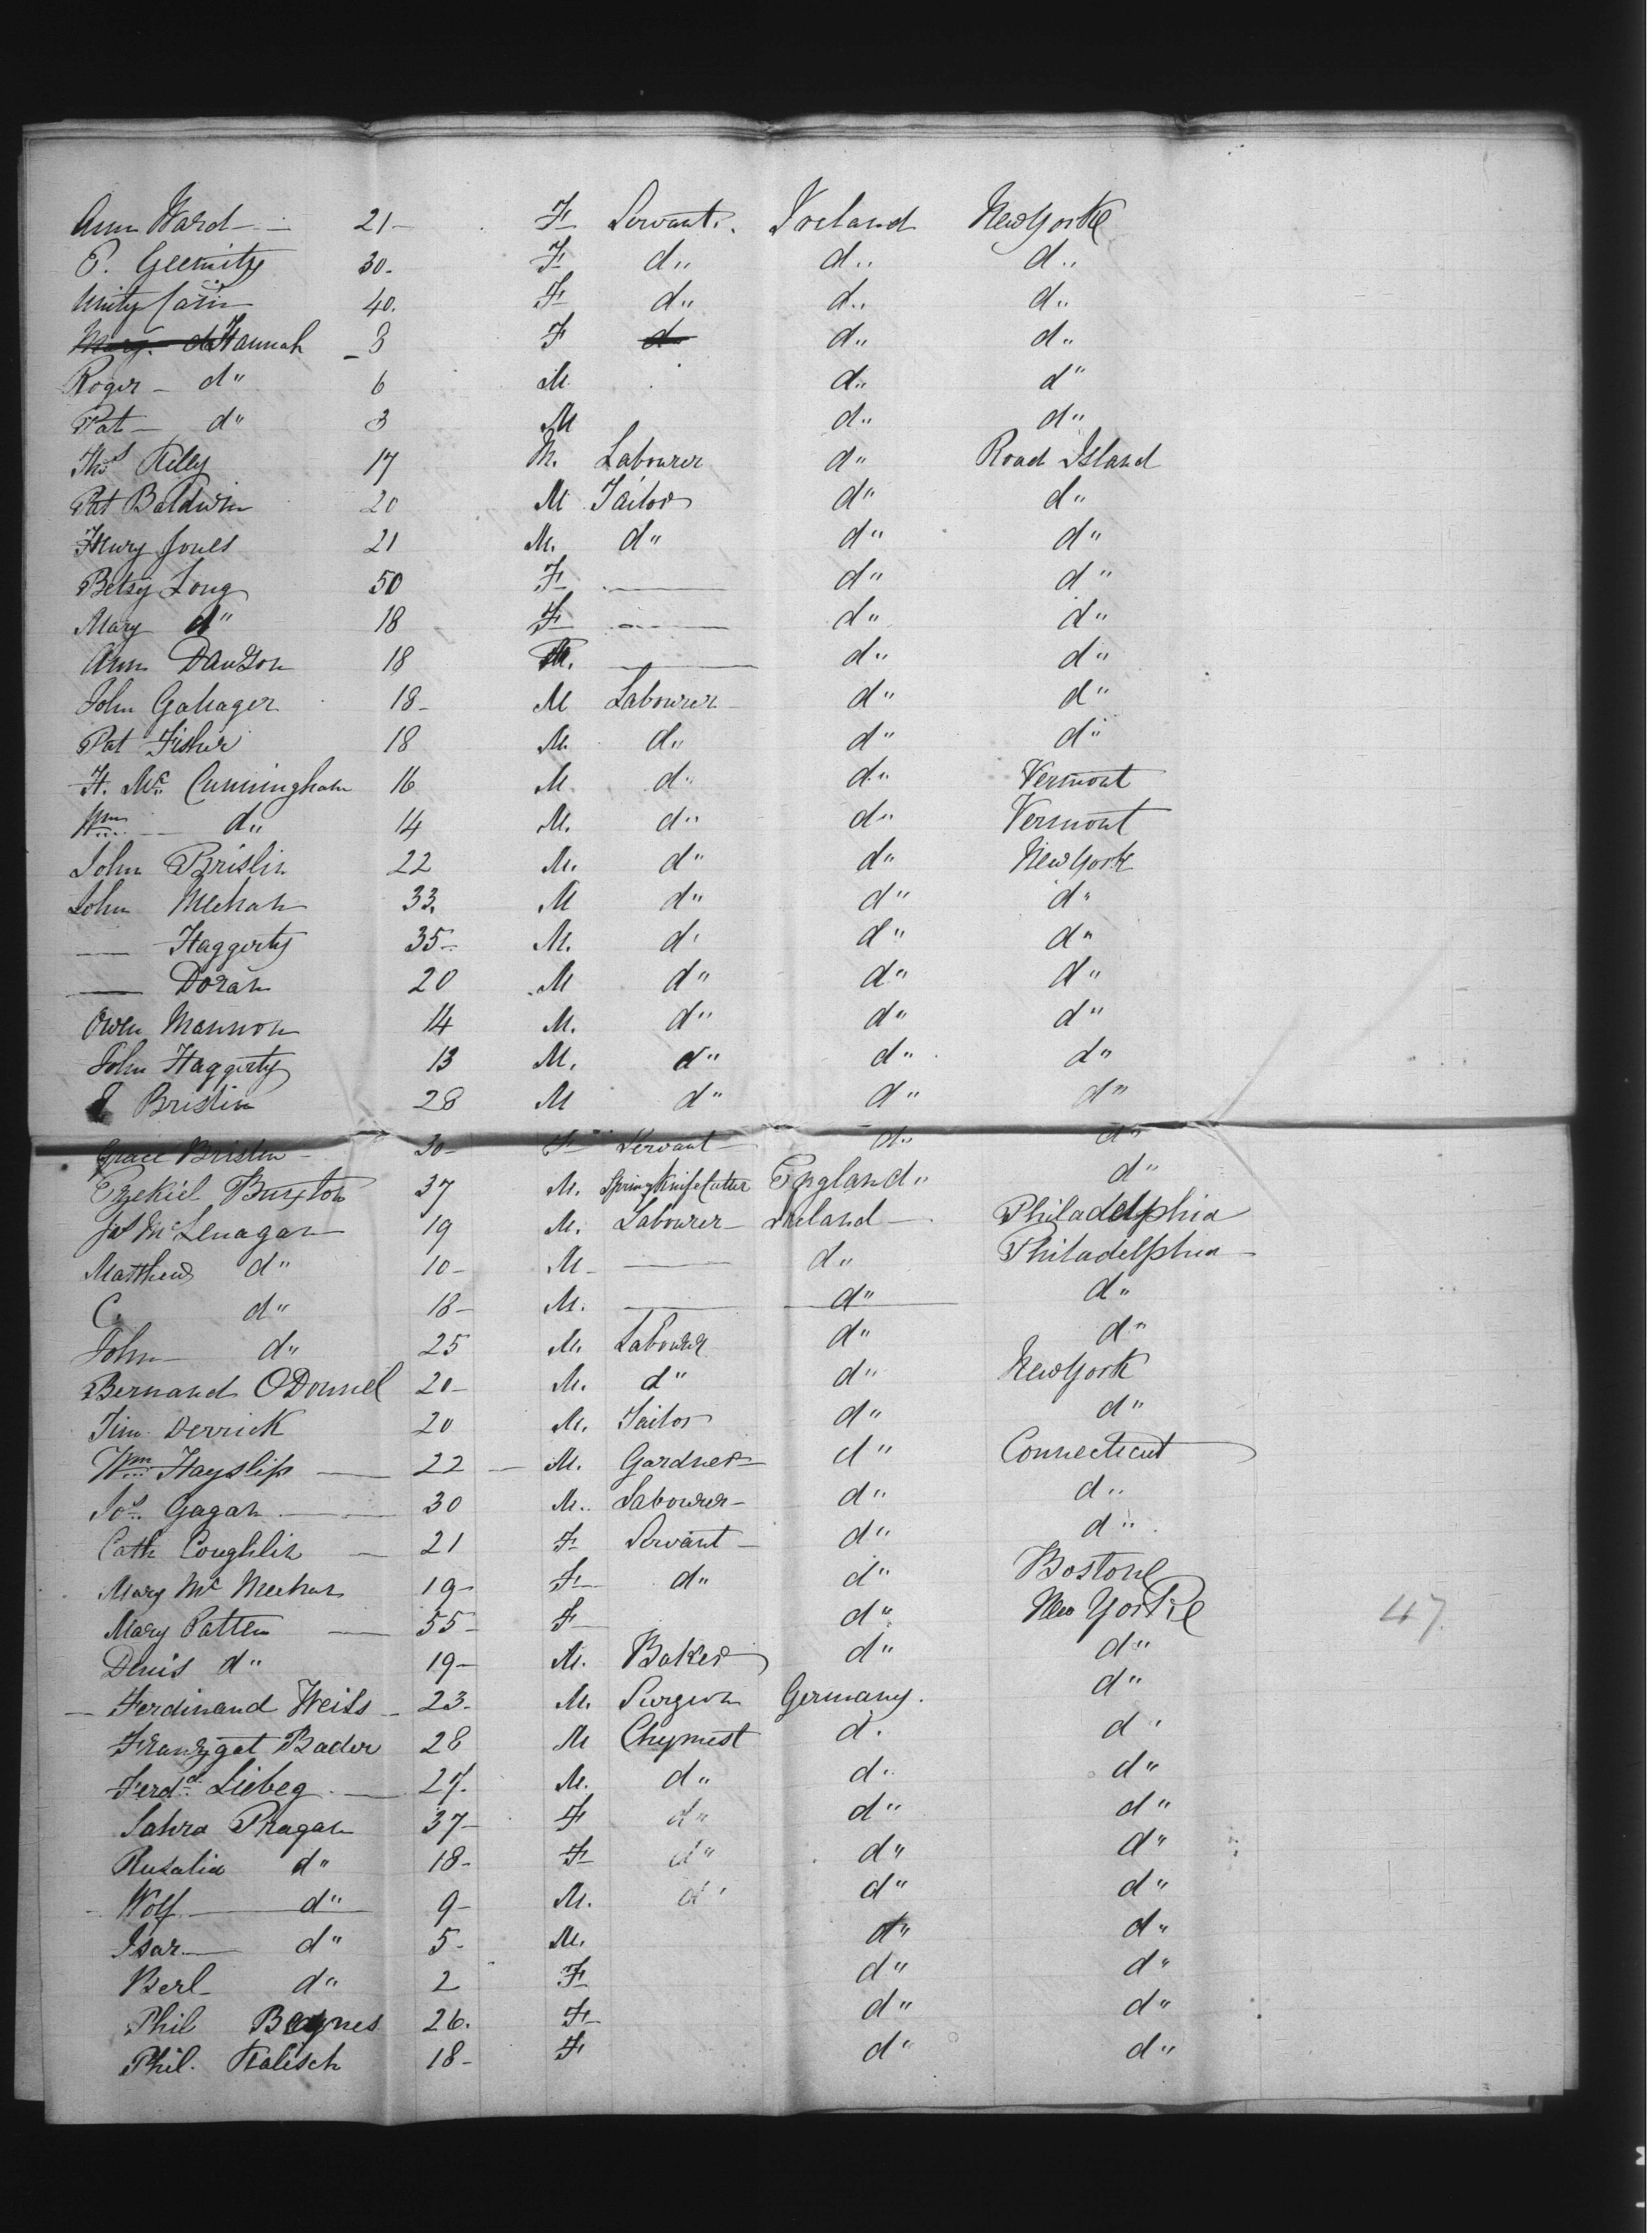 Ann Ward 21 F Servant Ireland New York
P. Geemitz 30 F d" d" d"
Unity Cain 40 F d" d" d"
Mary d" Hannah 8 F d" d" d"
Roger d" 6 M d" d"
Pat d" 3 M d" d"
Thos Rilly 17 M. Labourer d" Road Island
Pat Baldwin 20 M Tailor d" d"
Henry Jones 21 M. d" d" d"
Betsy Long 50 F — d" d"
Mary d" 18 F — d" d"
Ann Dauson 18 — d" d"
John Gahager 18 M Labourer d" d"
Pat Fisher 18 M d" d" d"
H. Mc Cunningham 16 M d" d" Vermont
Wm d" 14 M. d" d" Vermont
John Brislin 22 M. d" d" New York
John Meehan 33 M d" d" d"
— Haggerty 35 M. d" d" d"
— Doran 20 M d" d" d"
Owen Mannon 14 M. d" d" d"
John Haggerty 13 M. d" d" d"
Brislin 28 M d" d" d"
Grace Brislin 30 F Servant d" d"
Ezekiel Buxton 37 M. Spring Knife Cutter England d"
Jas McLenagan 19 M. Labourer Ireland Philadelphia
Matthew d" 10 M — d" Philadelphia
C. d" 18 M. — d" d"
John d" 25 M. Labourer d" d"
Bernard O'Donnel 20 M. d" d" New York
Jim Derrick 20 M. Tailor d" d"
Wm Hayslip 22 M. Gardner d" Connecticut
Jos. Gagan 30 M. Labourer d" d"
Cath Coughlin 21 F Servant d" d"
Mary Mc Meehan 19 F d" d" Boston
Mary Patten 55 F d" New York 47.
Denis d" 19 M. Baker d" d"
Ferdinand Weiss 23 M. Surgeon Germany. d"
Franzgot Bader 28 M Chymist d" d"
Ferdd Liebeg 27. M. d" d" d"
Sahra Pragan 37 F d" d" d"
Rusalia d" 18 F d" d" d"
Wolf d" 9 M. d" d" d"
Isar d" 5 M. d" d"
Berl d" 2 F d" d"
Phil Baynes 26. F d" d"
Phil. Kalisch 18 F d" d"